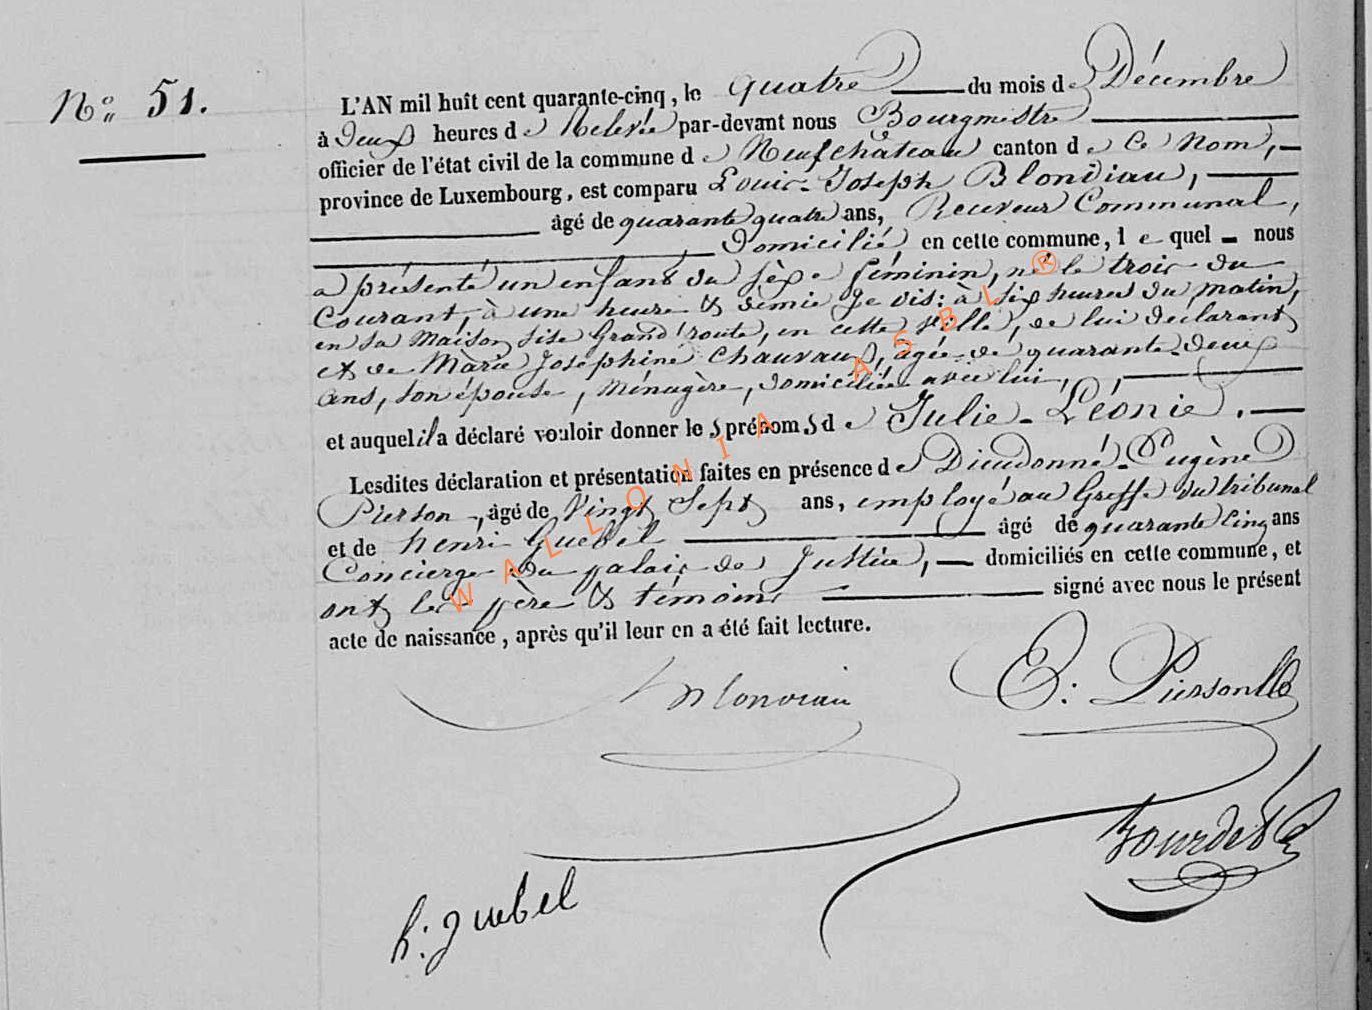 N° 51.
L'AN mil huit cent quarante-cinq, le quatre du mois de Décembre
à deux heures de Relevée par-devant nous Bourgmestre
officier de l'état civil de la commune de Neufchâteau canton de Ce Nom,
province de Luxembourg, est comparu Louis-Joseph Blondiau,
âgé de quarante quatre ans, Receveur Communal,
domicilié en cette commune, lequel nous
a présenté un enfant du sèxe féminin, né le trois du
Courant, à une heure & demie je dis: à six heures du matin,
en sa maison sise Grand'route, en cette Ville, de lui déclarant
et de Marie Joséphine Chauvaux, agée de quarante-deux
ans, son épouse, ménagère, domiciliée avec lui,
et auquel il a déclaré vouloir donner les prénoms de Julie-Léonie.
Lesdites déclaration et présentation faites en présence de Dieudonné-Eugène
Pierson, âgé de Vingt Sept ans, employé au Greffe du tribunal
et de henri Guebel âgé de quarante Cinq ans
Concierge du palais de Justice, domiciliés en cette commune, et
ont les père & témoins signé avec nous le présent
acte de naissance, après qu'il leur en a été fait lecture.
Blondiau
E: Pierson
Bourdet
h: guebel
WALLONIA ASBL ®